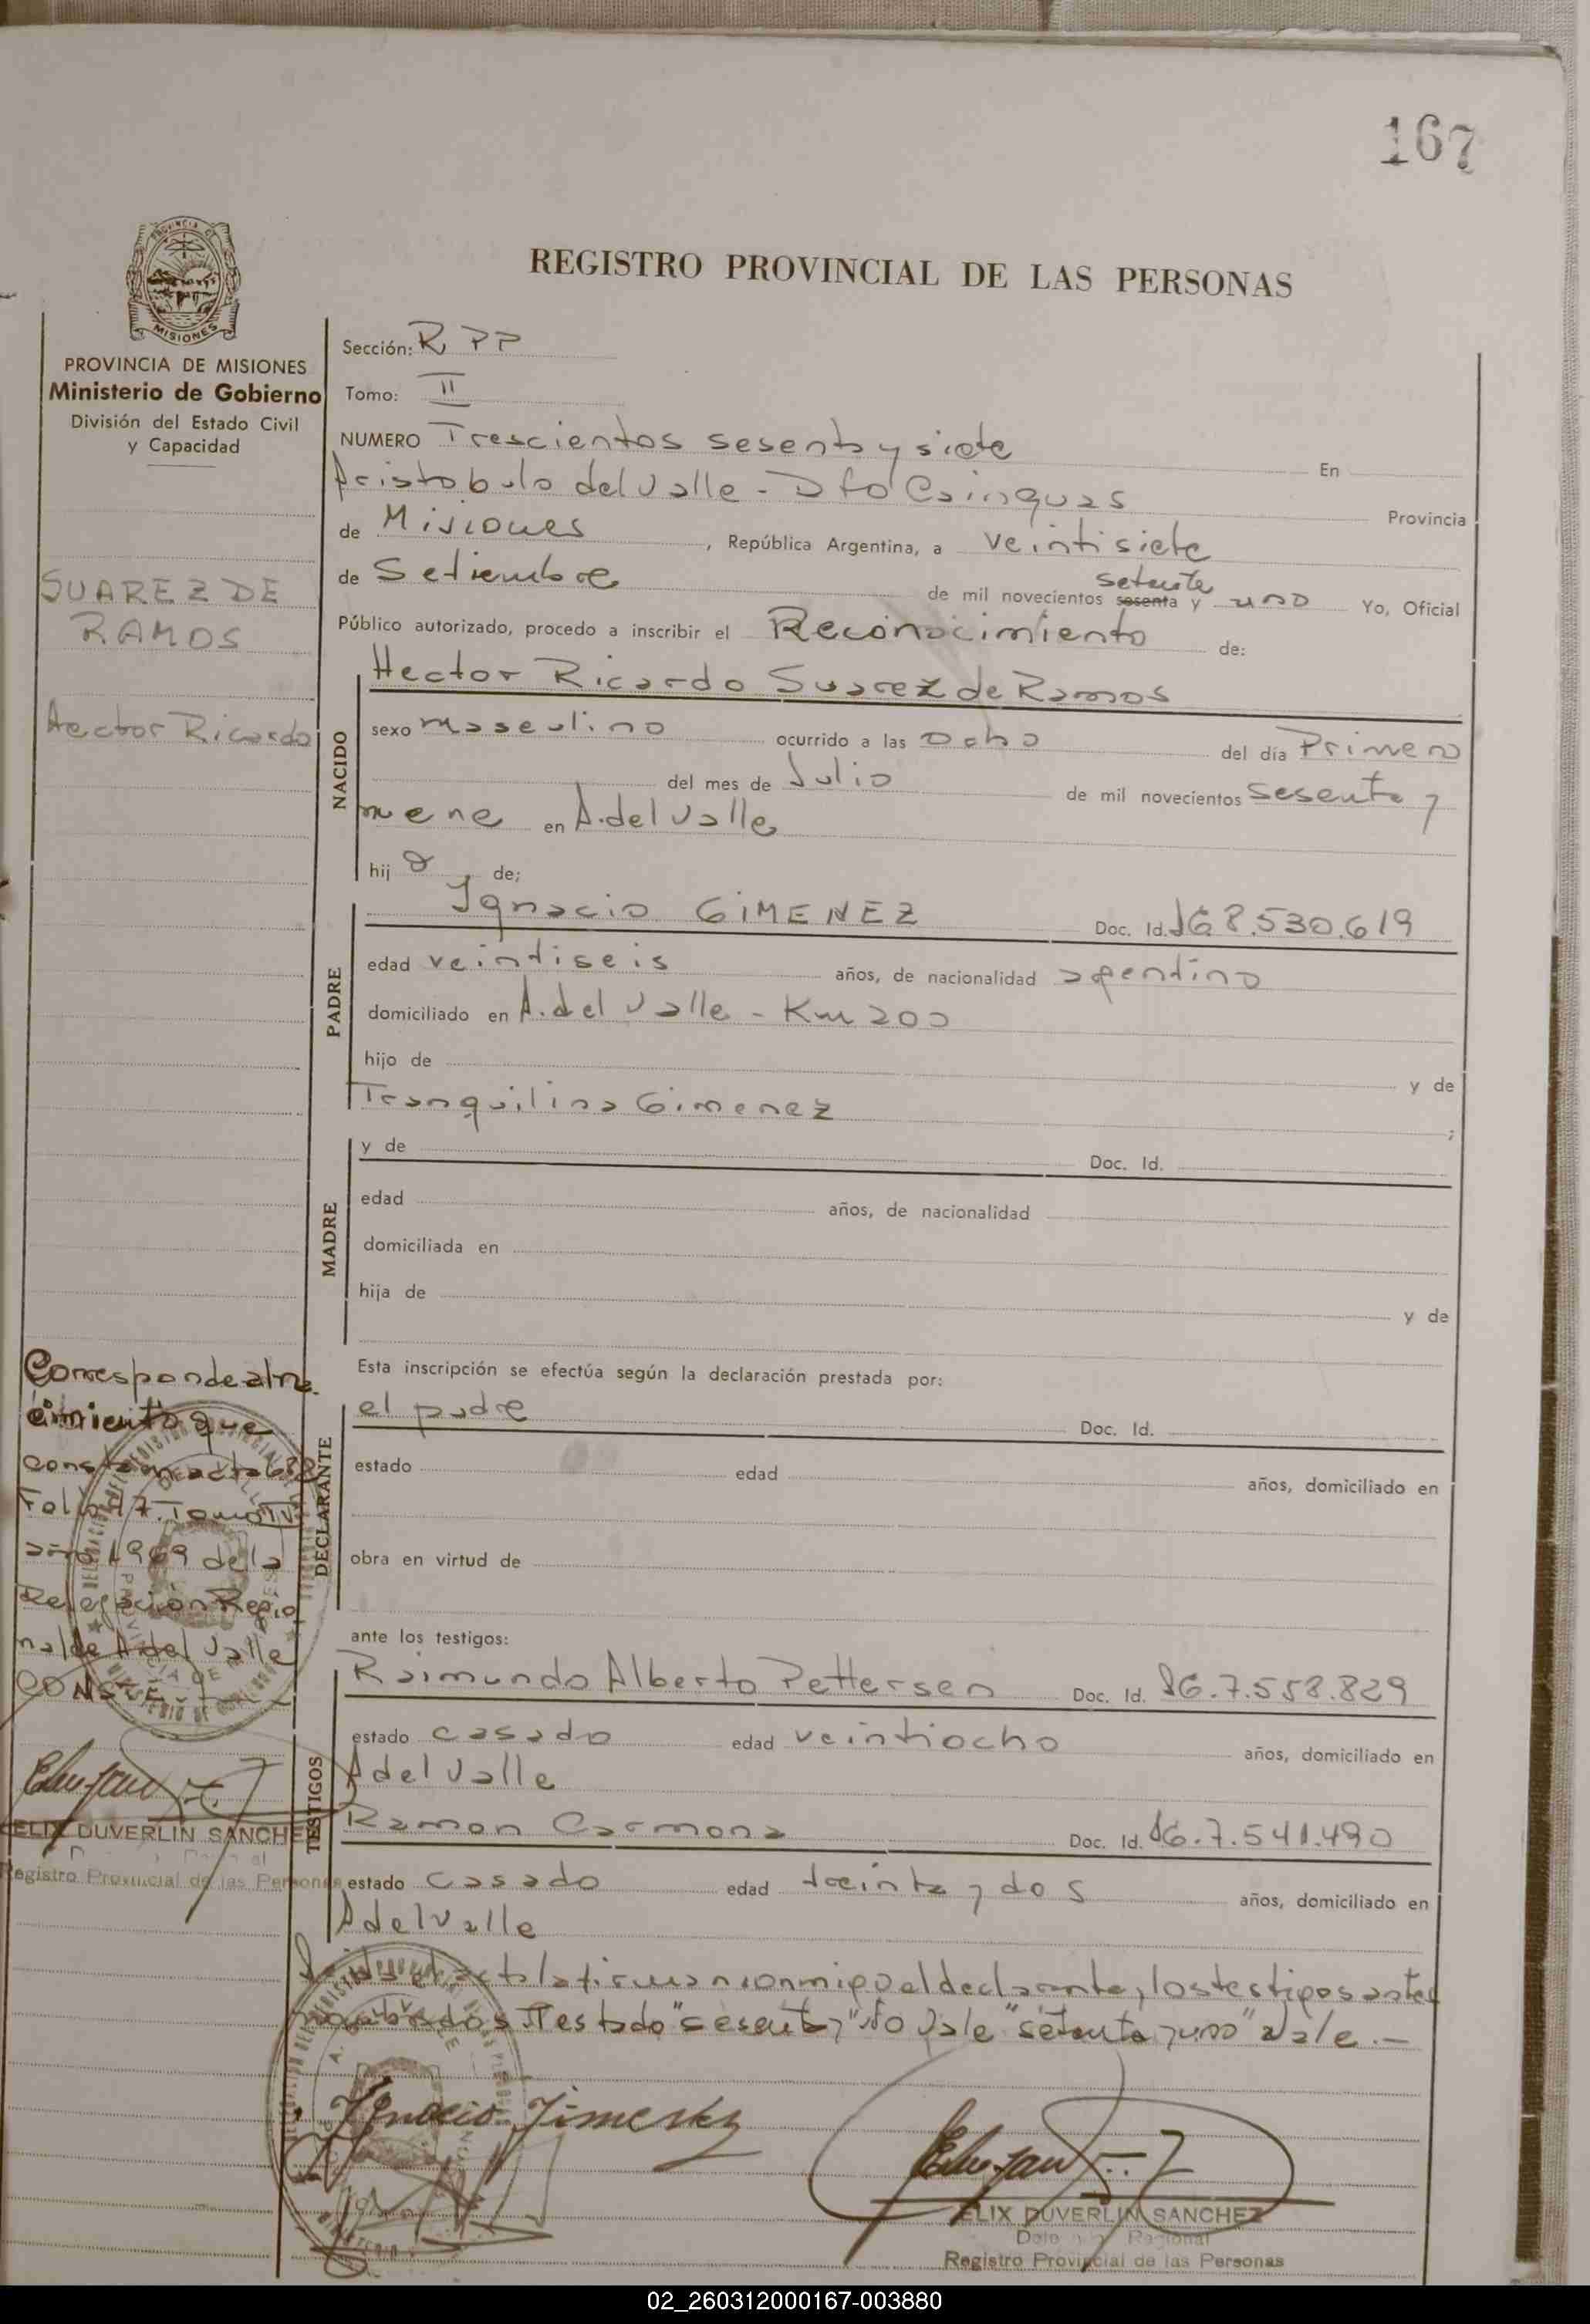 167
REGISTRO PROVINCIAL DE LAS PERSONAS
PROVINCIA DE MISIONES
PROVINCIA DE MISIONES
Ministerio de Gobierno
División del Estado Civil
y Capacidad
SUAREZ DE
RAMOS
Hector Ricardo
Sección: R PP
Tomo: II
NUMERO Trescientos sesenta y siete En
Aristobulo del Valle - Dto Cainguas Provincia
de Misiones, República Argentina, a veintisiete
setenta
de Setiembre de mil novecientos sesenta y uno Yo, Oficial
Público autorizado, procedo a inscribir el Reconocimiento de:
NACIDO
Hector Ricardo Suarez de Ramos
sexo masculino ocurrido a las ocho del día Primero
del mes de Julio de mil novecientos sesenta y
nueve en A. del Valle
hij o de;
PADRE
Ignacio GIMENEZ Doc. Id. 8.530.619
edad veintiseis años, de nacionalidad argentino
domiciliado en A. del Valle - Km 200
hijo de y de
Tranquilina Gimenez ;
MADRE
y de Doc. Id.
edad años, de nacionalidad
domiciliada en
hija de y de
Esta inscripción se efectúa según la declaración prestada por:
DECLARANTE
el padre Doc. Id.
estado edad años, domiciliado en
obra en virtud de
ante los testigos:
TESTIGOS
Raimundo Alberto Pettersen Doc. Id. 7.558.829
estado casado edad veintiocho años, domiciliado en
A del Valle
Ramon Carmona Doc. Id. 7.541.490
estado casado edad treinta y dos años, domiciliado en
A del Valle
la firman conmigo el declarante, los testigos antes
nombrados Testado "sesenta y" No Vale "setenta y uno" Vale.-
Ignacio Jimenez
FELIX DUVERLIN SANCHEZ
Regional
Registro Provincial de las Personas
Corresponde al na
cimiento que
consta en acta
Folio 17. Tomo IV
año 1969 de la
Delegación Regio
nal de A. del Valle
CONSTE
FELIX DUVERLIN SANCHEZ
Registro Provincial de las Personas
02_260312000167-003880